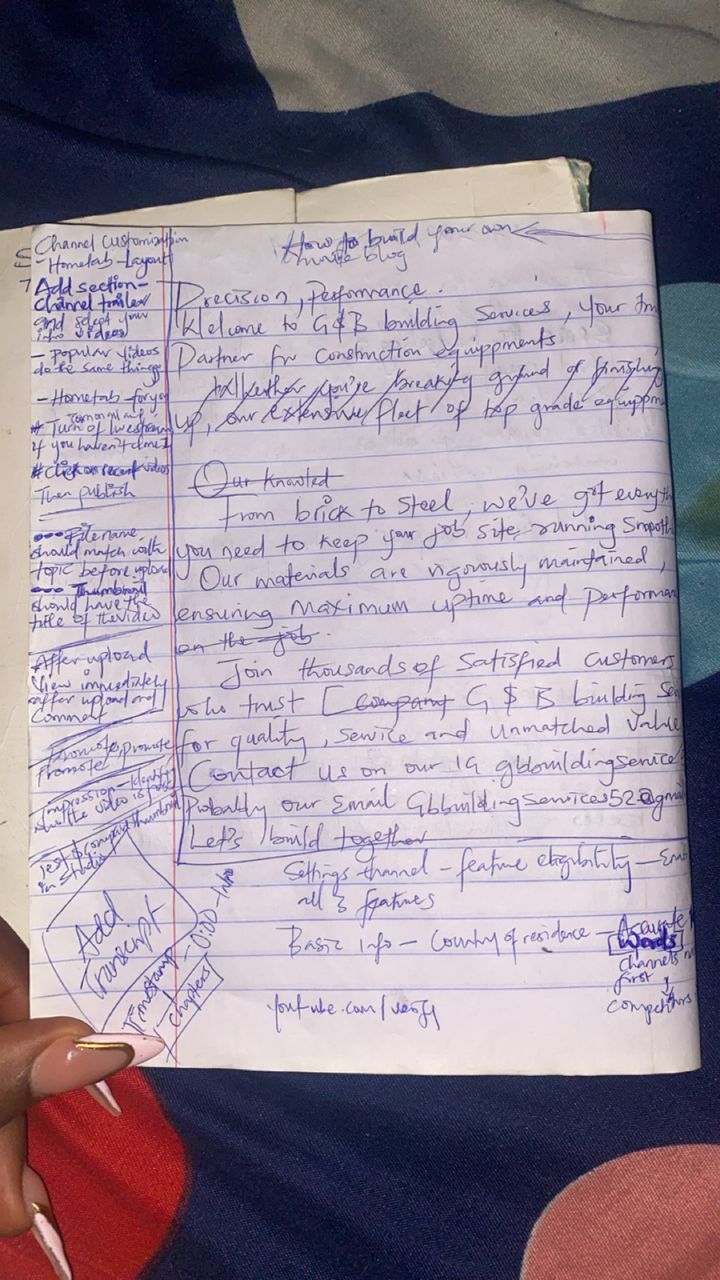 Channel Customization
- Hometab - Layout
Add section -
Channel trailer
and select your
intro videos
- Popular videos
do the same things
- Hometab - for you
# Turn of livestream
if you haven't done 1
# Click on recent videos
Then publish
Filename
should match with
topic before upload
Thumbnail
should have the
title of the video
After upload
View immediately
after upload and
Comment
Promote, promote
Promote
Impression - Identify
what the video is
Test & compare thumbnail
in studio
Add
Transcript
Timestamp - 0:00 - Intro
- Chapters
How to build your own
movie blog
Precision, performance.
Welcome to G$B building Services, your
Partner for Construction equippments
Whether you're breaking ground of finishing
up, our extensive fleet of top grade equippm
Our Knowled
From brick to Steel, we've got everyth
you need to keep your job site, running Smooth
Our materials are rigorously maintained,
ensuring Maximum uptime and performan
on the job.
Join thousands of Satisfied Customers
who trust [Company G $ B building Se
for quality, service and unmatched value
Contact us on our IG gbbuildingservice
Probably our Email Gbbuildingservices52@gmai
Let's build together
Settings channel - feature eligibility - Enab
all 3 features
Basic info - Country of residence - Accurate
Words
channels
first
competitors
Youtube.com/verify